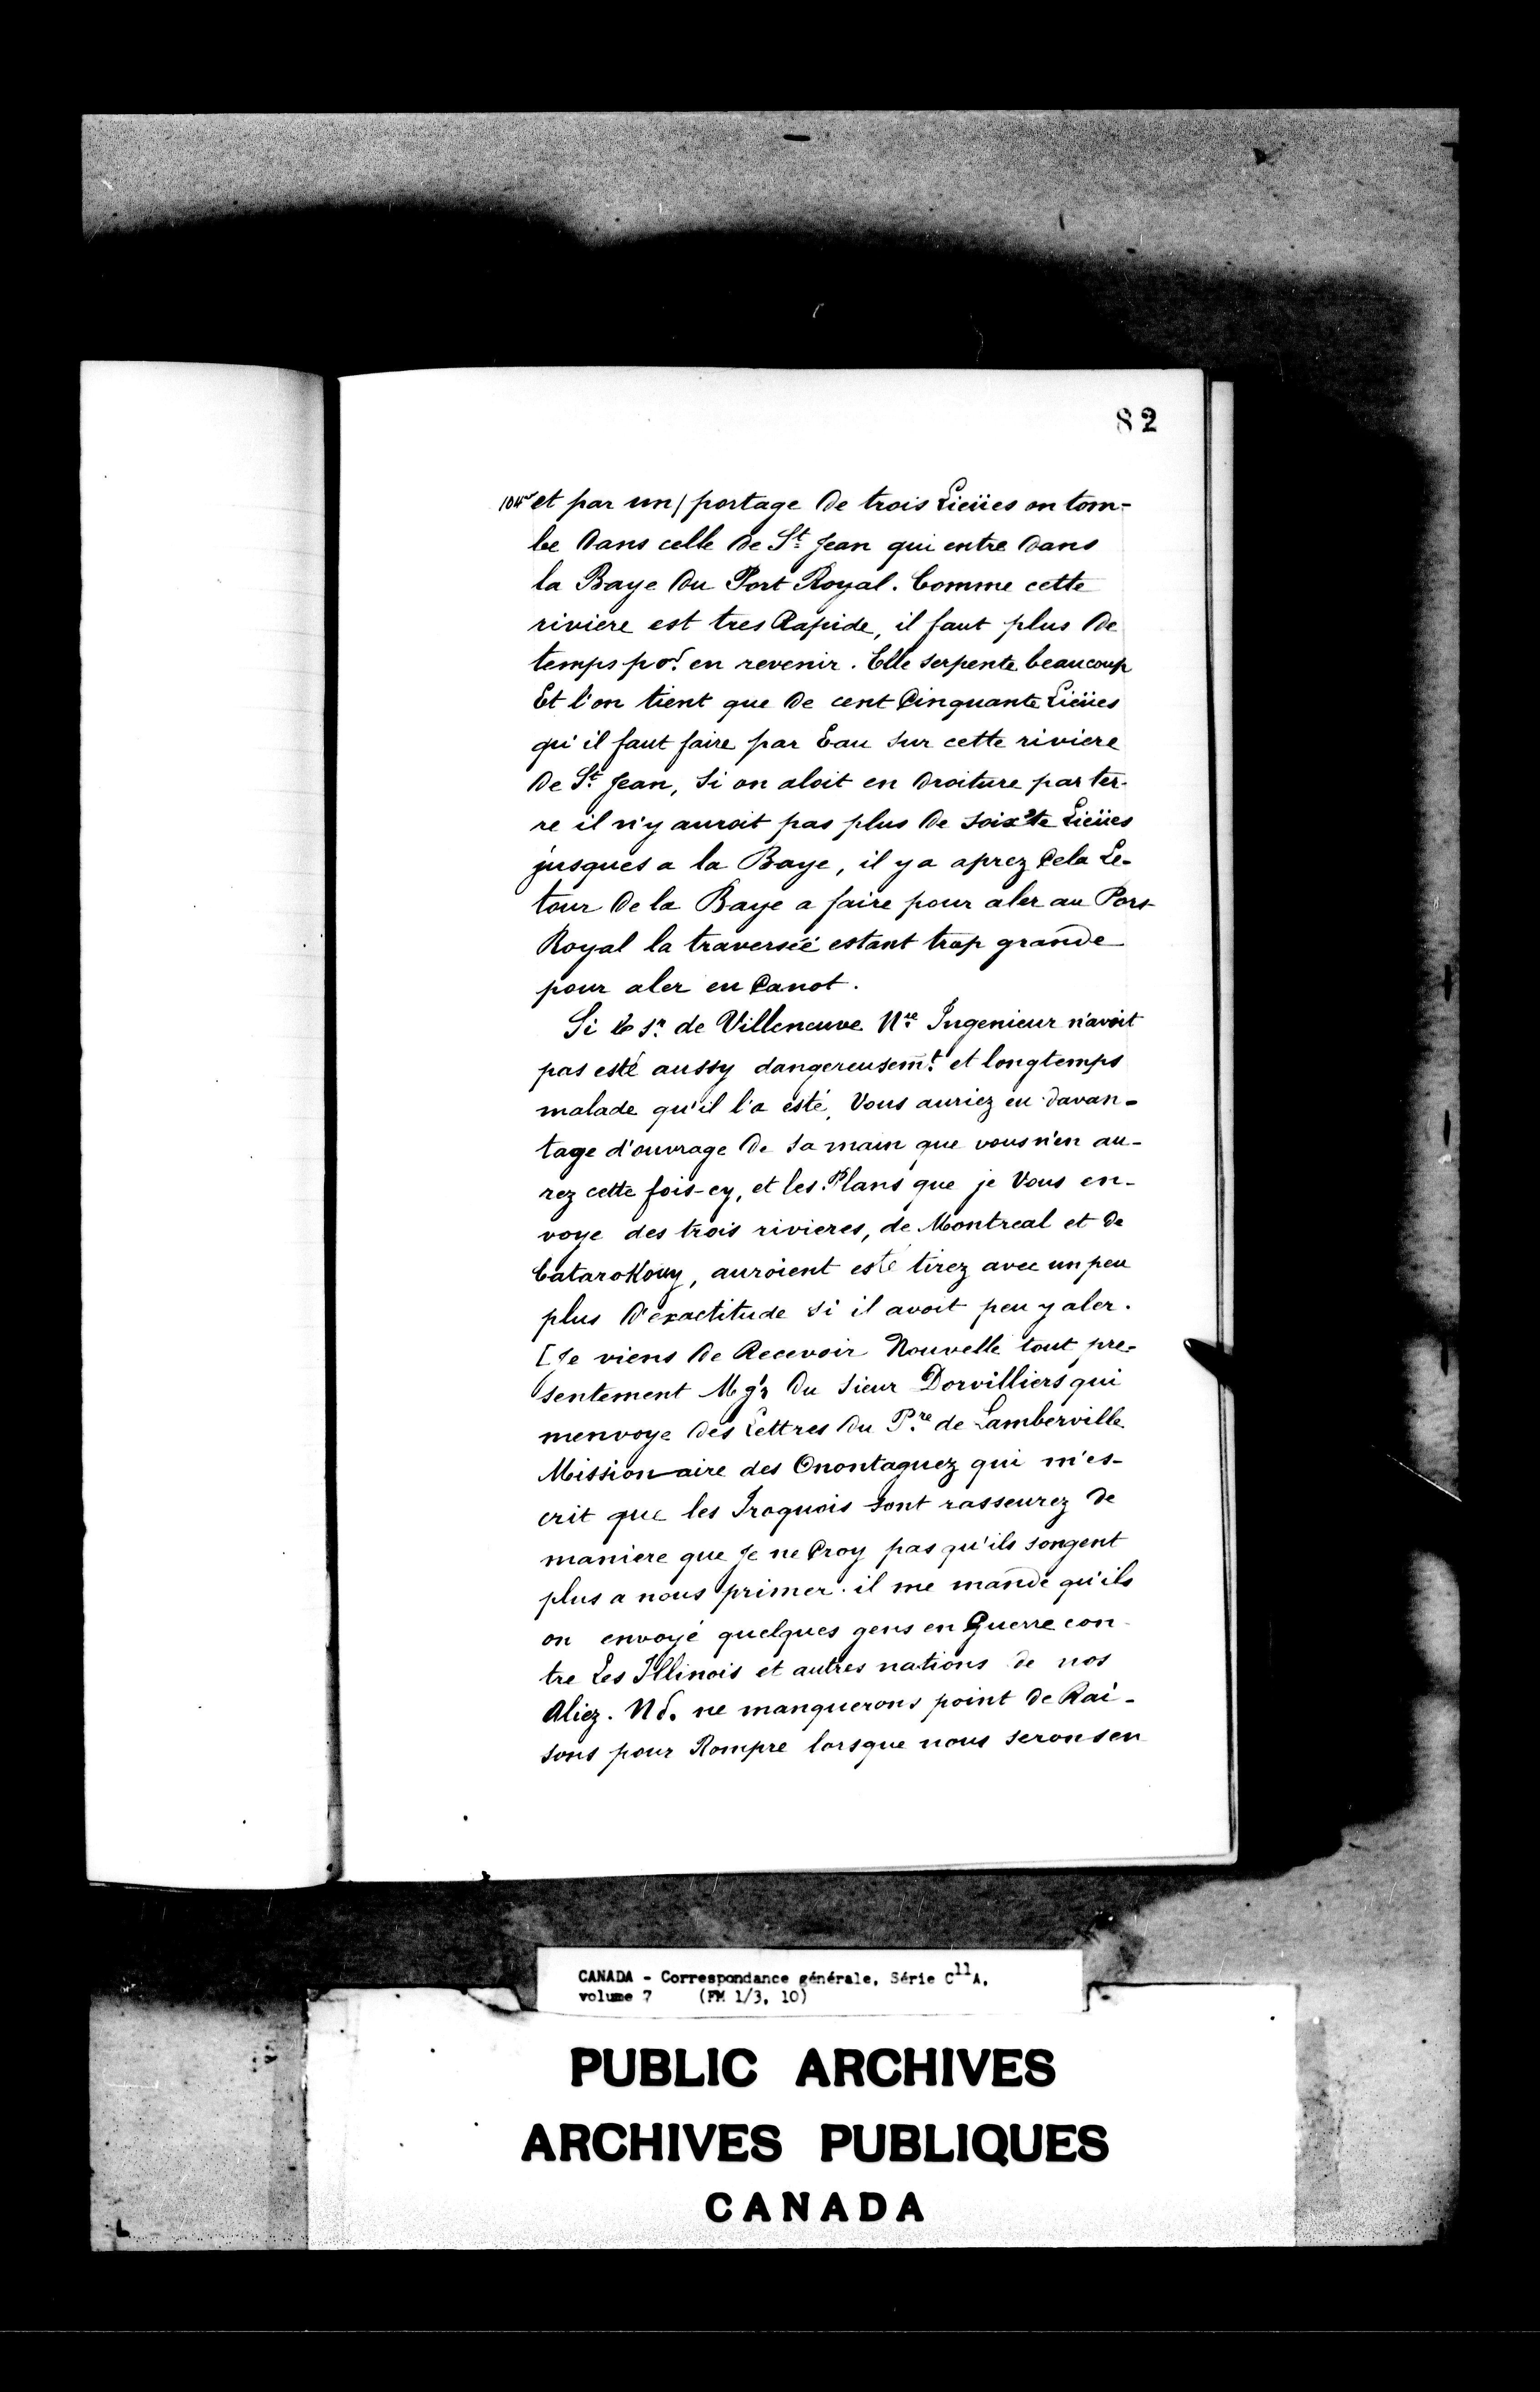 82
104v et par un/ portage de trois Lieües on tom-
be dans celle de St Jean qui entre dans
la Baye du Port Royal. Comme cette
riviere est tres Rapide, il faut plus de
temps por. en revenir. Elle serpente beaucoup
Et l'on tient que de cent Cinquante Lieües
qu'il faut faire par Eau sur cette riviere
de St. Jean, si on aloit en droiture par ter-
re il n'y auroit pas plus de soixte Lieües
jusques a la Baye, il y a aprez Cela Le-
tour de la Baye a faire pour aler au Port
Royal la traversée estant trop grande
pour aler en Canot.
Si le sr. de Villeneuve Nre. Ingenieur n'avoit
pas esté aussy dangereusemt. et longtemps
malade qu'il l'a esté, Vous auriez eu davan-
tage d'ouvrage de sa main que vous n'en au-
rez cette fois-cy, et les Plans que je Vous en-
voye des trois rivieres, de Montreal et de
Catarokouy, auroient esté tirez avec un peu
plus d'exactitude si il avoit peu y aler.
[Je viens de Recevoir Nouvelle tout pre-
sentement Mgr du sieur Dorvilliers qui
menvoye des Lettres du Pre. de Lamberville
Missionaire des Onontaguez qui m'es-
crit que les Iroquois sont rasseurez de
maniere que Je ne Croy pas qu'ils songent
plus a nous primer. il me mande qu'ils
on envoyé quelques gens en Guerre con-
tre Les Illinois et autres nations de nos
Aliez. ne manquerons point de Rai-
sons pour Rompre lorsque nous serons en
CANADA - Correspondance générale, Série C11A,
volume 7 (FM 1/3, 10)
PUBLIC ARCHIVES
ARCHIVES PUBLIQUES
CANADA